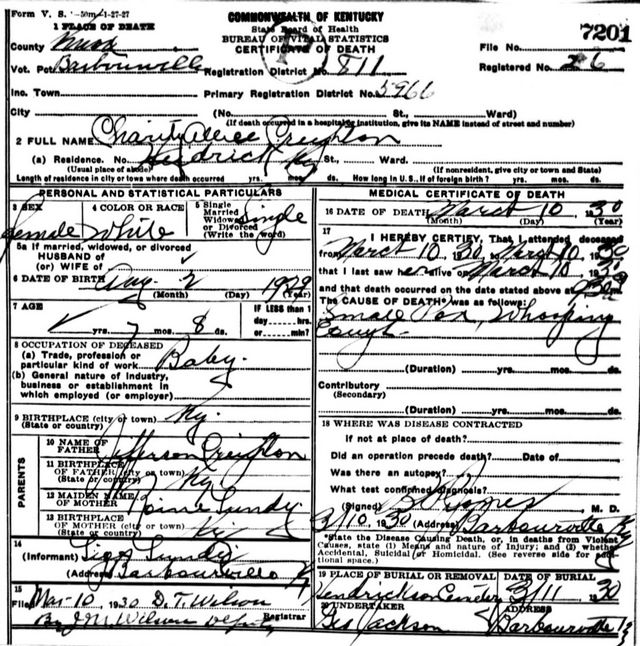 Form V. S. 1-50m-1-27-27
COMMONWEALTH OF KENTUCKY
State Board of Health
BUREAU OF VITAL STATISTICS
CERTIFICATE OF DEATH
7201
1 PLACE OF DEATH
County
File No.
Vot. Pct Barbourville
Registration District No. 811
Registered No. 26
Inc. Town
Primary Registration District No. 5966
City (No. St., Ward)
(If death occurred in a hospital or institution, give its NAME instead of street and number)
2 FULL NAME Charity Creighton
(a) Residence. No. Ky St., Ward.
(Usual place of abode) (If nonresident, give city or town and State)
Length of residence in city or town where death occurred yrs. mos. ds. How long in U. S. if of foreign birth? yrs. mos. ds.
PERSONAL AND STATISTICAL PARTICULARS
3 SEX
Female
4 COLOR OR RACE
White
5 Single
Married
Widowed
or Divorced
(Write the word)
Single
5a If married, widowed, or divorced
HUSBAND of
(or) WIFE of
6 DATE OF BIRTH Aug 2 1929
(Month) (Day) (Year)
7 AGE
yrs. 7 mos. 8 ds.
IF LESS than 1
day----hrs.
or----min?
8 OCCUPATION OF DECEASED
(a) Trade, profession or
particular kind of work Baby
(b) General nature of industry,
business or establishment in
which employed (or employer)
9 BIRTHPLACE (city or town) Ky.
(State or country)
PARENTS
10 NAME OF
FATHER Jefferson Creighton
11 BIRTHPLACE
OF FATHER (city or town) Ky
(State or country)
12 MAIDEN NAME
OF MOTHER
13 BIRTHPLACE
OF MOTHER (city or town) Ky
(State or country)
14
(Informant)
(Address) Barbourville Ky
15
Filed Mar-10, 1930 D. T. Wilson
Registrar
By J M Wilson Deputy
MEDICAL CERTIFICATE OF DEATH
16 DATE OF DEATH March 10 1930
(Month) (Day) (Year)
17
I HEREBY CERTIFY, That I attended deceased
from March 10 1930 to March 10 1930
that I last saw her alive on March 10 1930
and that death occurred on the date stated above at
The CAUSE OF DEATH* was as follows:
Small Pox, Whooping
Cough
(Duration) yrs. mos. ds.
Contributory
(Secondary)
(Duration) yrs. mos. ds.
18 WHERE WAS DISEASE CONTRACTED
If not at place of death?
Did an operation precede death? Date of
Was there an autopsy?
What test confirmed diagnosis?
(Signed) M. D.
3/10 1930 (Address) Barbourville Ky
*State the Disease Causing Death, or, in deaths from Violent
Causes, state (1) Means and nature of Injury; and (2) whether
Accidental, Suicidal or Homicidal. (See reverse side for addi-
tional space.)
19 PLACE OF BURIAL OR REMOVAL
Hendrickson Cemetery
DATE OF BURIAL
3/11 1930
20 UNDERTAKER
Jackson
Barbourville